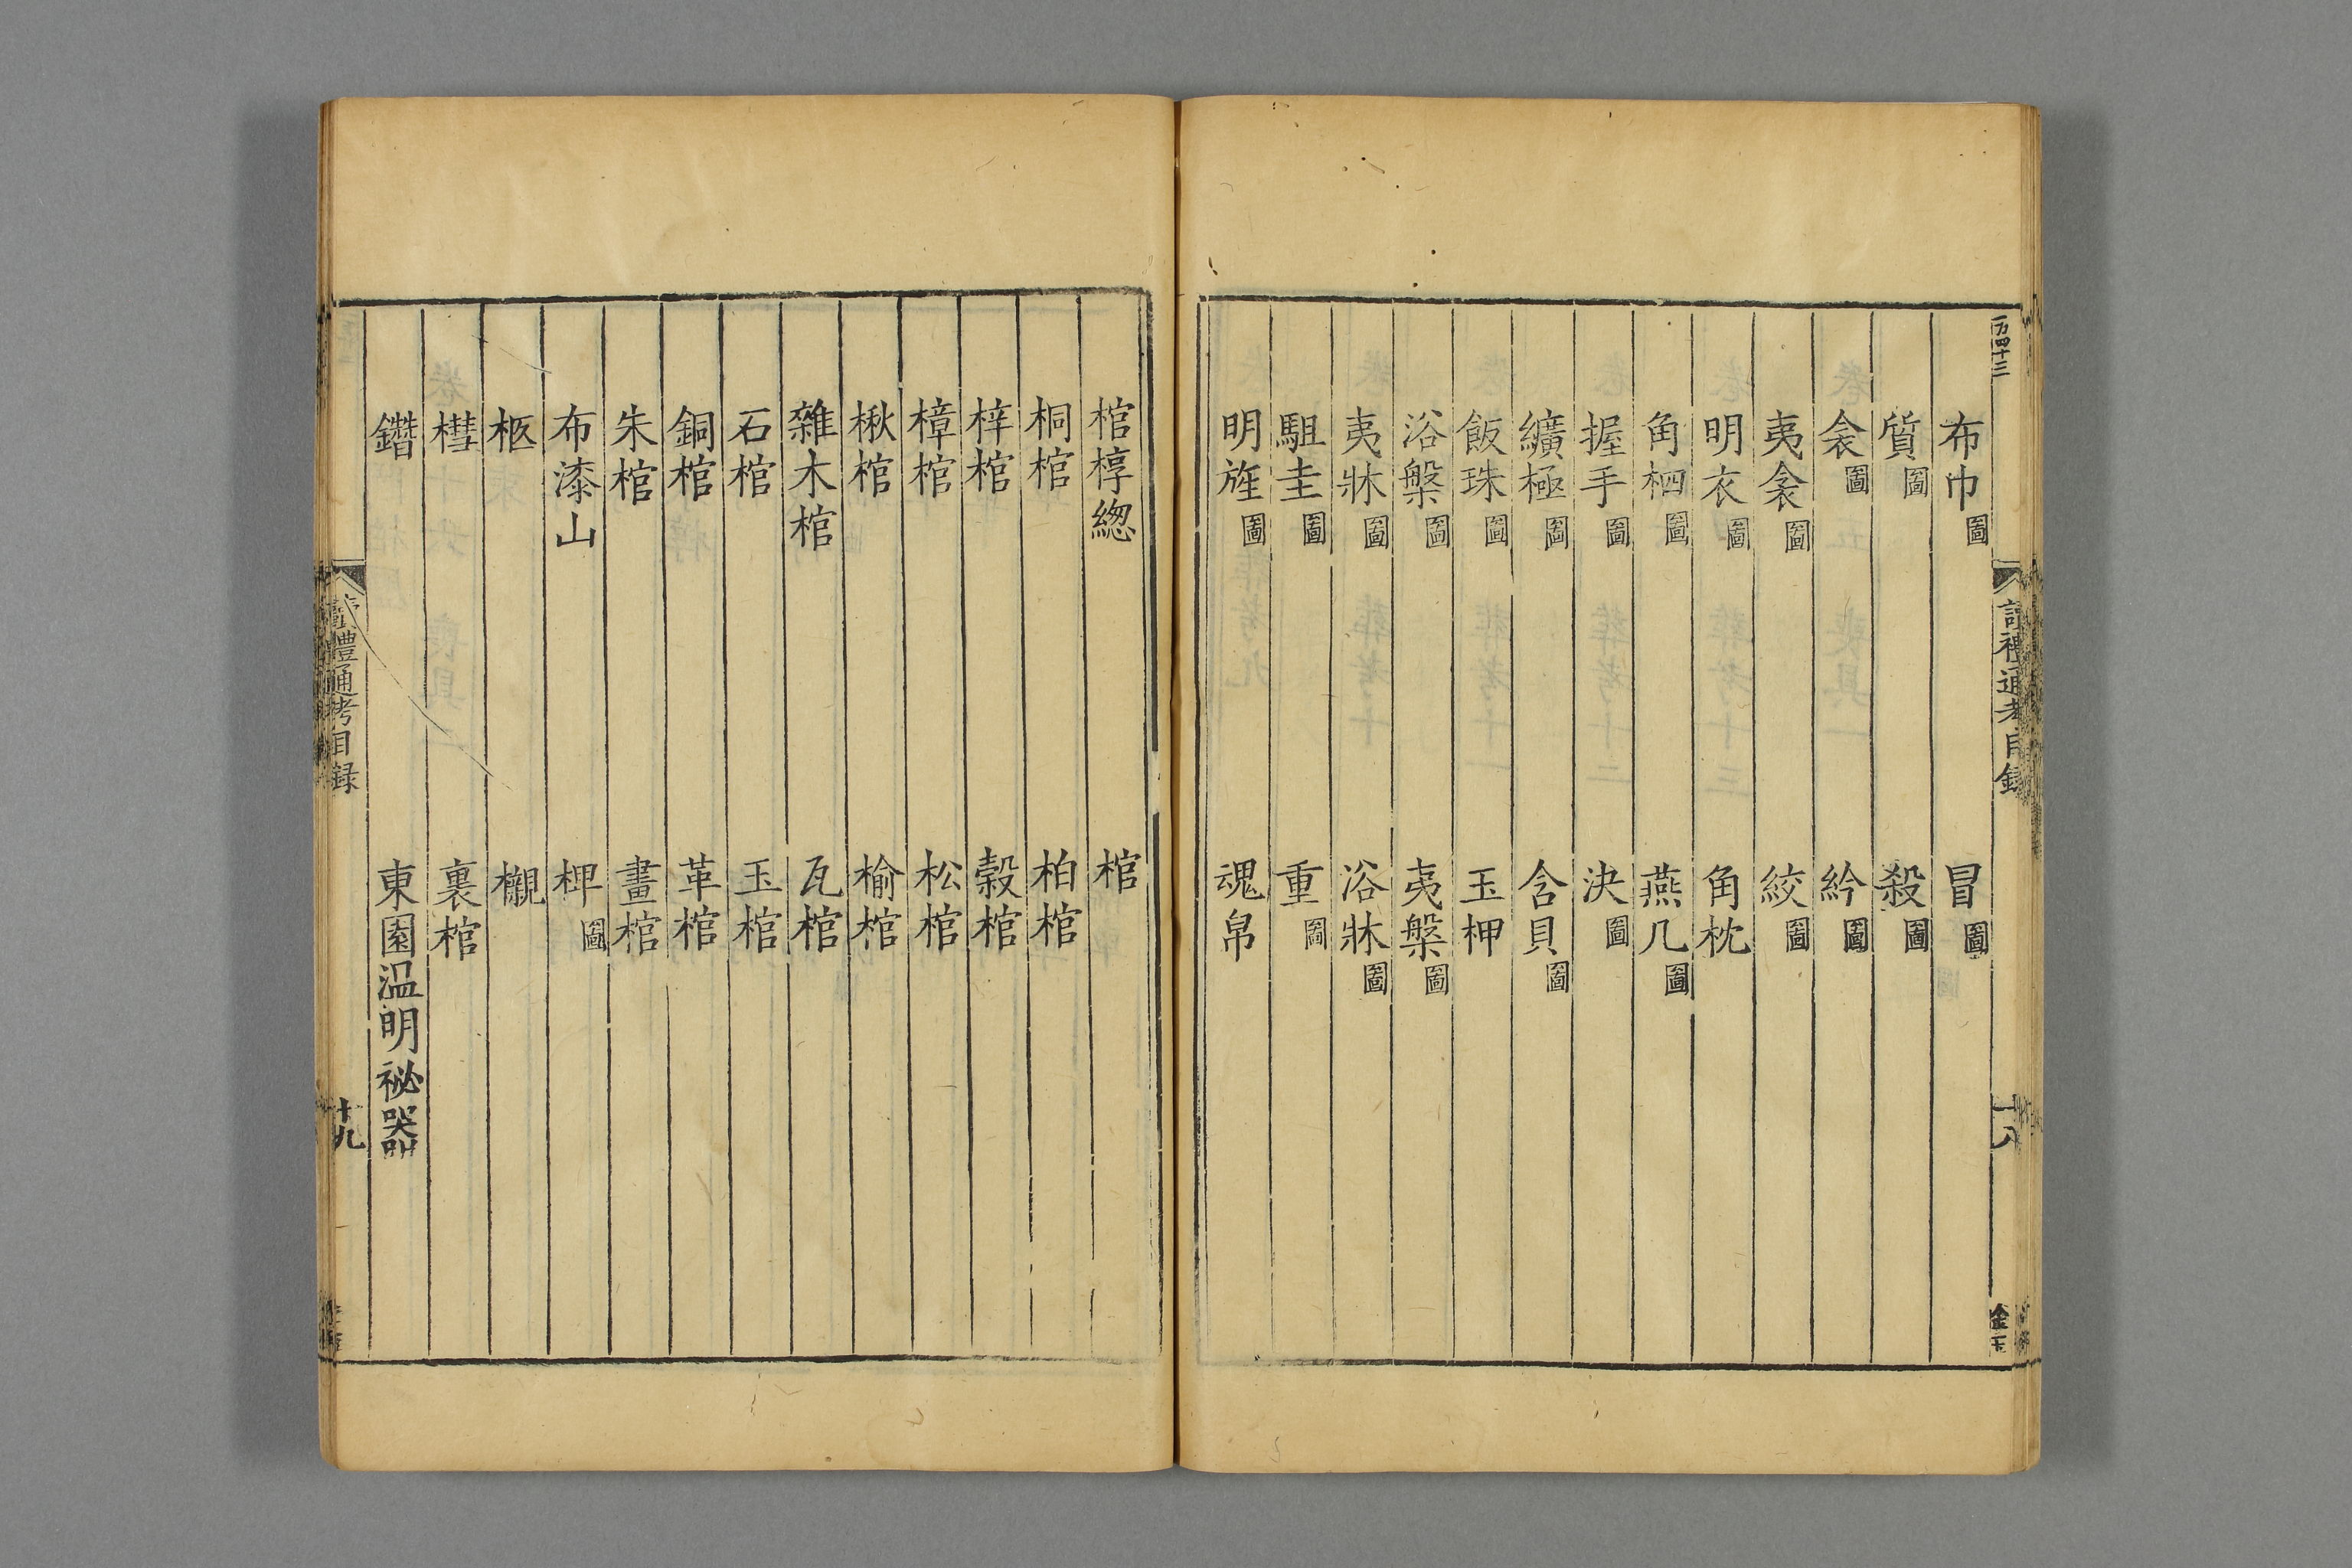 布巾圖 冒圖
質圖 殺圖
衾圖 紟圖
夷衾圖 絞圖
明衣圖 角枕
角柶圖 燕几圖
握手圖 決圖
纊極圖 含貝圖
飯珠圖 玉柙
浴槃圖 夷槃圖
夷牀圖 浴牀圖
駔圭圖 重圖
明旌圖 魂帛
讀禮通考目錄
金玉
棺椁緫 棺
桐棺 柏棺
梓棺 榖棺
樟棺 松棺
楸棺 榆棺
雜木棺 瓦棺
石棺 玉棺
銅棺 革棺
朱棺 畫棺
布漆山 椑圖
柩 櫬
槥 裏棺
鐕 東園温明祕器
讀禮通考目録 十九